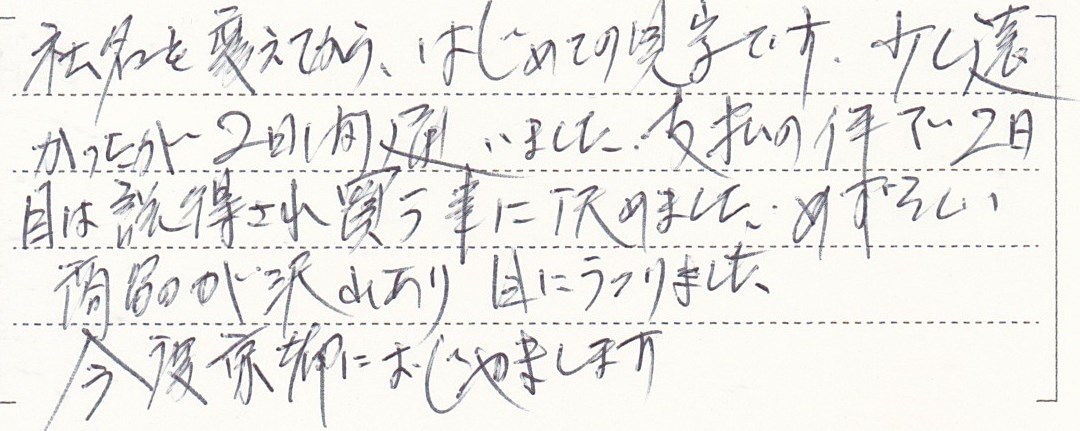 社名を変えてから、はじめての見学です。少し遠
かったが2日間通いました。支払の件で2日
目は説得され買う事に決めました。めずらしい
商品が沢山あり目にうつりました。
今度京都におじゃまします